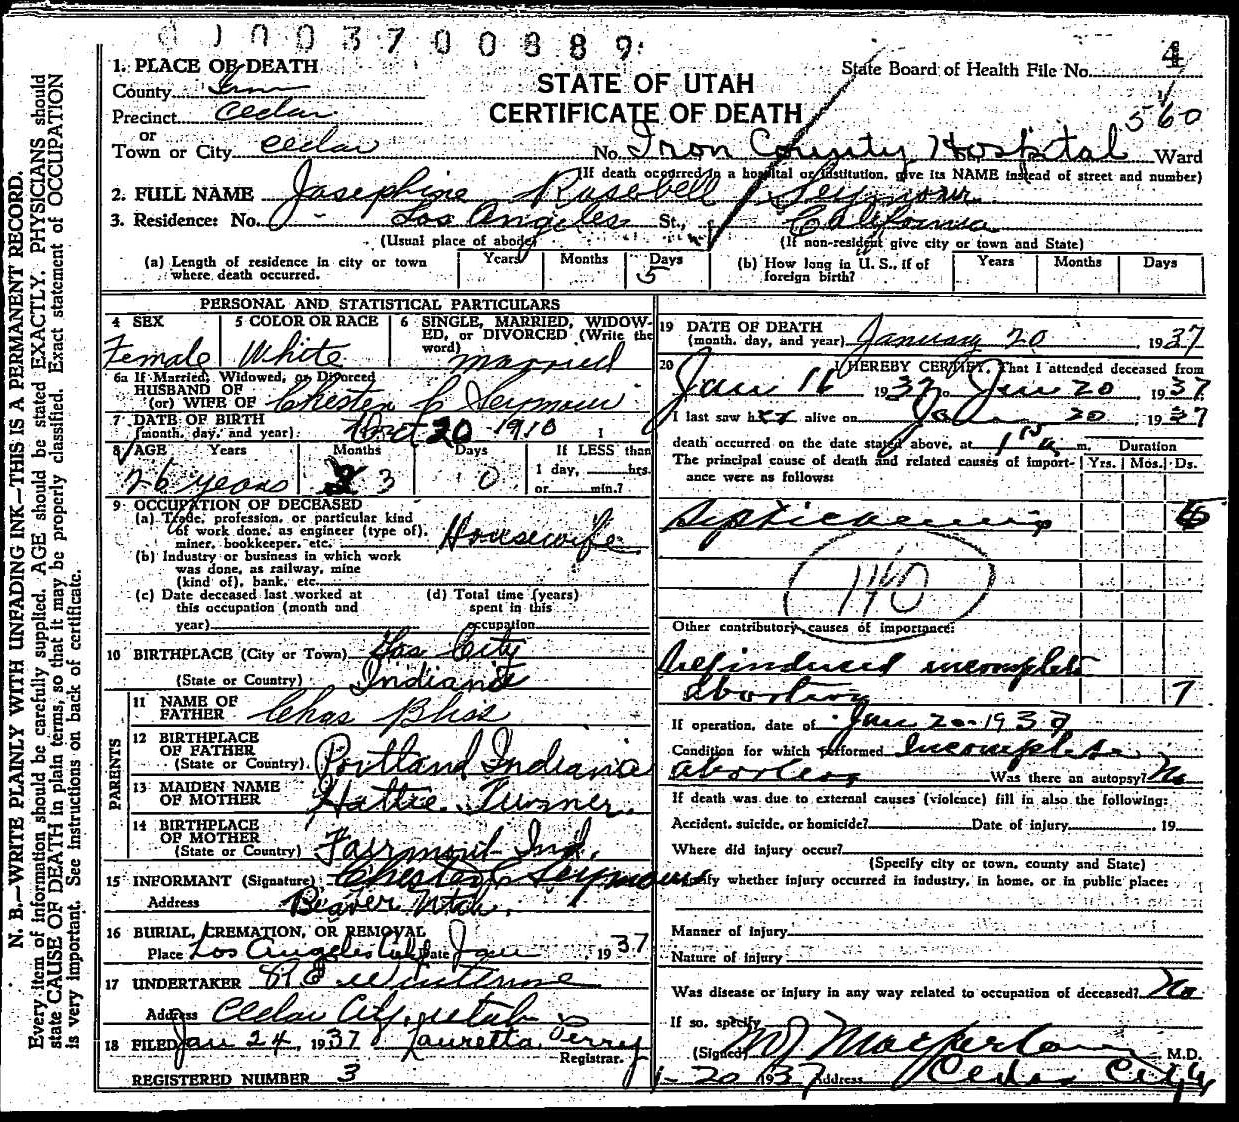 0 1 0 0 3 7 0 0 0 8 9
1. PLACE OF DEATH
County Iron
Precinct Cedar
or
Town or City Cedar
STATE OF UTAH
CERTIFICATE OF DEATH
State Board of Health File No. 4
560
No. Iron County Hospital Ward
(If death occurred in a hospital or institution, give its NAME instead of street and number)
2. FULL NAME Josephine Rosebell Seymour
3. Residence: No. - Los Angeles St., California
(Usual place of abode) (If non-resident give city or town and State)
(a) Length of residence in city or town where death occurred. Years Months Days 5
(b) How long in U. S., if of foreign birth? Years Months Days
PERSONAL AND STATISTICAL PARTICULARS
4 SEX Female
5 COLOR OR RACE White
6 SINGLE, MARRIED, WIDOWED, or DIVORCED (Write the word) married
6a If Married, Widowed, or Divorced
HUSBAND OF
(or) WIFE OF Chester C Seymour
7 DATE OF BIRTH
(month, day, and year) Oct 20 - 1910
8 AGE Years Months Days If LESS than
1 day, hrs.
or min.?
26 years 3 0
9 OCCUPATION OF DECEASED
(a) Trade, profession, or particular kind
of work done, as engineer (type of),
miner, bookkeeper, etc. Housewife
(b) Industry or business in which work
was done, as railway, mine
(kind of), bank, etc.
(c) Date deceased last worked at
this occupation (month and
year)
(d) Total time (years)
spent in this
occupation
10 BIRTHPLACE (City or Town) Gas City
(State or Country) Indiana
PARENTS
11 NAME OF
FATHER Chas Bliss
12 BIRTHPLACE
OF FATHER
(State or Country) Portland Indiana
13 MAIDEN NAME
OF MOTHER Hattie Turner
14 BIRTHPLACE
OF MOTHER
(State or Country) Fairmont Ind.
15 INFORMANT (Signature) Chester C Seymour
Address Beaver Utah.
16 BURIAL, CREMATION, OR REMOVAL
Place Los Angeles Calif Date Jan 1937
17 UNDERTAKER
Address Cedar City, Utah
18 FILED Jan 24, 1937 Lauretta Perry
Registrar.
REGISTERED NUMBER 3
19 DATE OF DEATH
(month, day, and year) January 20, 1937
20 I HEREBY CERTIFY, That I attended deceased from
Jan 16 1937 to Jan 20, 1937
I last saw her alive on Jan 20, 1937
death occurred on the date stated above, at 1 a m. Duration
The principal cause of death and related causes of importance were as follows: Yrs. Mos. Ds.
Septicaemia
140
Other contributory causes of importance:
Self induced incomplete
abortion 7
If operation, date of Jan 20 - 1937
Condition for which performed Incomplete
abortion Was there an autopsy? No
If death was due to external causes (violence) fill in also the following:
Accident, suicide, or homicide? Date of injury , 19
Where did injury occur?
(Specify city or town, county and State)
Specify whether injury occurred in industry, in home, or in public place:
Manner of injury
Nature of injury
Was disease or injury in any way related to occupation of deceased? No
If so, specify
(Signed) M.D.
1-20 1937 Address Cedar City
N. B.—WRITE PLAINLY WITH UNFADING INK—THIS IS A PERMANENT RECORD.
Every item of information should be carefully supplied. AGE should be stated EXACTLY. PHYSICIANS should
state CAUSE OF DEATH in plain terms, so that it may be properly classified. Exact statement of OCCUPATION
is very important. See instructions on back of certificate.